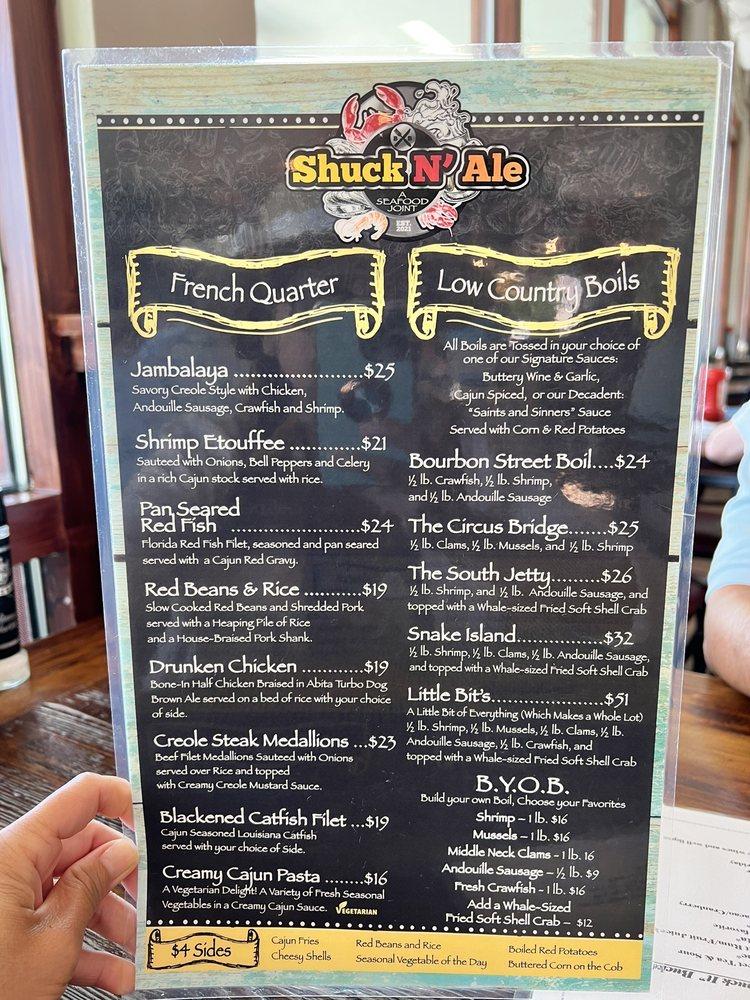 Shuck N' Ale
A
SEAFOOD
JOINT
EST.
2021
French Quarter
Jambalaya ......................$25
Savory Creole Style with Chicken,
Andouille Sausage, Crawfish and Shrimp.
Shrimp Etouffee ............$21
Sauteed with Onions, Bell Peppers and Celery
in a rich Cajun stock served with rice.
Pan Seared
Red Fish ......................$24
Florida Red Fish Filet, seasoned and pan seared
served with a Cajun Red Gravy.
Red Beans & Rice ..........$19
Slow Cooked Red Beans and Shredded Pork
served with a Heaping Pile of Rice
and a House-Braised Pork Shank.
Drunken Chicken ..........$19
Bone-In Half Chicken Braised in Abita Turbo Dog
Brown Ale served on a bed of rice with your choice
of side.
Creole Steak Medallions ...$23
Beef Filet Medallions Sauteed with Onions
served over Rice and topped
with Creamy Creole Mustard Sauce.
Blackened Catfish Filet ...$19
Cajun Seasoned Louisiana Catfish
served with your choice of Side.
Creamy Cajun Pasta .......$16
A Vegetarian Delight! A Variety of Fresh Seasonal
Vegetables in a Creamy Cajun Sauce. VEGETARIAN
Low Country Boils
All Boils are Tossed in your choice of
one of our Signature Sauces:
Buttery Wine & Garlic,
Cajun Spiced, or our Decadent:
"Saints and Sinners" Sauce
Served with Corn & Red Potatoes
Bourbon Street Boil....$24
½ lb. Crawfish, ½ lb. Shrimp,
and ½ lb. Andouille Sausage
The Circus Bridge.......$25
½ lb. Clams, ½ lb. Mussels, and ½ lb. Shrimp
The South Jetty.........$26
½ lb. Shrimp, and ½ lb. Andouille Sausage, and
topped with a Whale-sized Fried Soft Shell Crab
Snake Island...............$32
½ lb. Shrimp, ½ lb. Clams, ½ lb. Andouille Sausage,
and topped with a Whale-sized Fried Soft Shell Crab
Little Bit's....................$51
A Little Bit of Everything (Which Makes a Whole Lot)
½ lb. Shrimp, ½ lb. Mussels, ½ lb. Clams, ½ lb.
Andouille Sausage, ½ lb. Crawfish, and
topped with a Whale-sized Fried Soft Shell Crab
B.Y.O.B.
Build your own Boil, Choose your Favorites
Shrimp – 1 lb. $16
Mussels – 1 lb. $16
Middle Neck Clams - 1 lb. 16
Andouille Sausage – ½ lb. $9
Fresh Crawfish - 1 lb. $16
Add a Whale-Sized
Fried Soft Shell Crab – $12
$4 Sides
Cajun Fries
Cheesy Shells
Red Beans and Rice
Seasonal Vegetable of the Day
Boiled Red Potatoes
Buttered Corn on the Cob